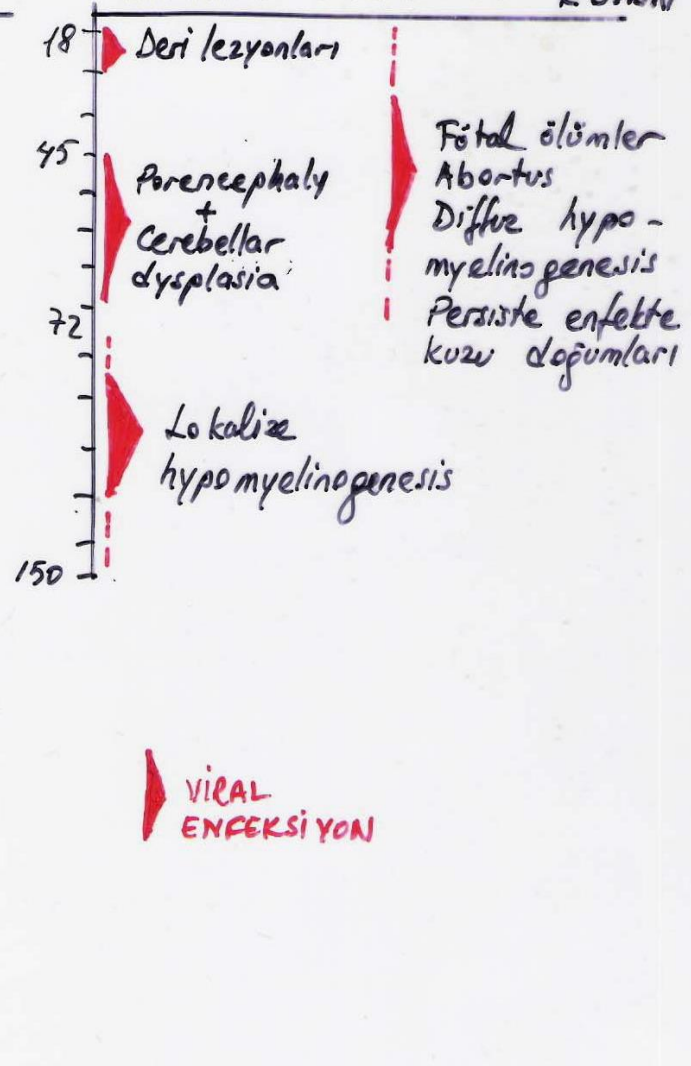 18
Deri lezyonları
45
Porencephaly
+
Cerebellar
dysplasia
72
Lokalize
hypomyelinogenesis
150
Fötal ölümler
Abortus
Diffuz hypo-
myelinogenesis
Persiste enfekte
kuzu doğumları
VİRAL
ENFEKSİYON